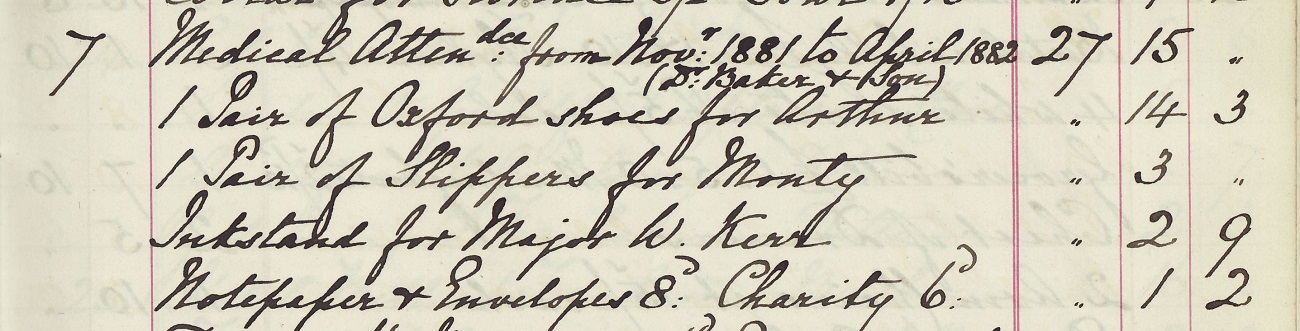 7 Medical Attendce. from Novr. 1881 to April 1882 27 15 "
(Dr. Baker & Son)
1 Pair of Oxford shoes for Arthur " 14 3
1 Pair of Slippers for Monty " 3 "
Inkstand for Major W. Kerr " 2 9
Notepaper & Envelopes 8d. Charity 6d. " 1 2